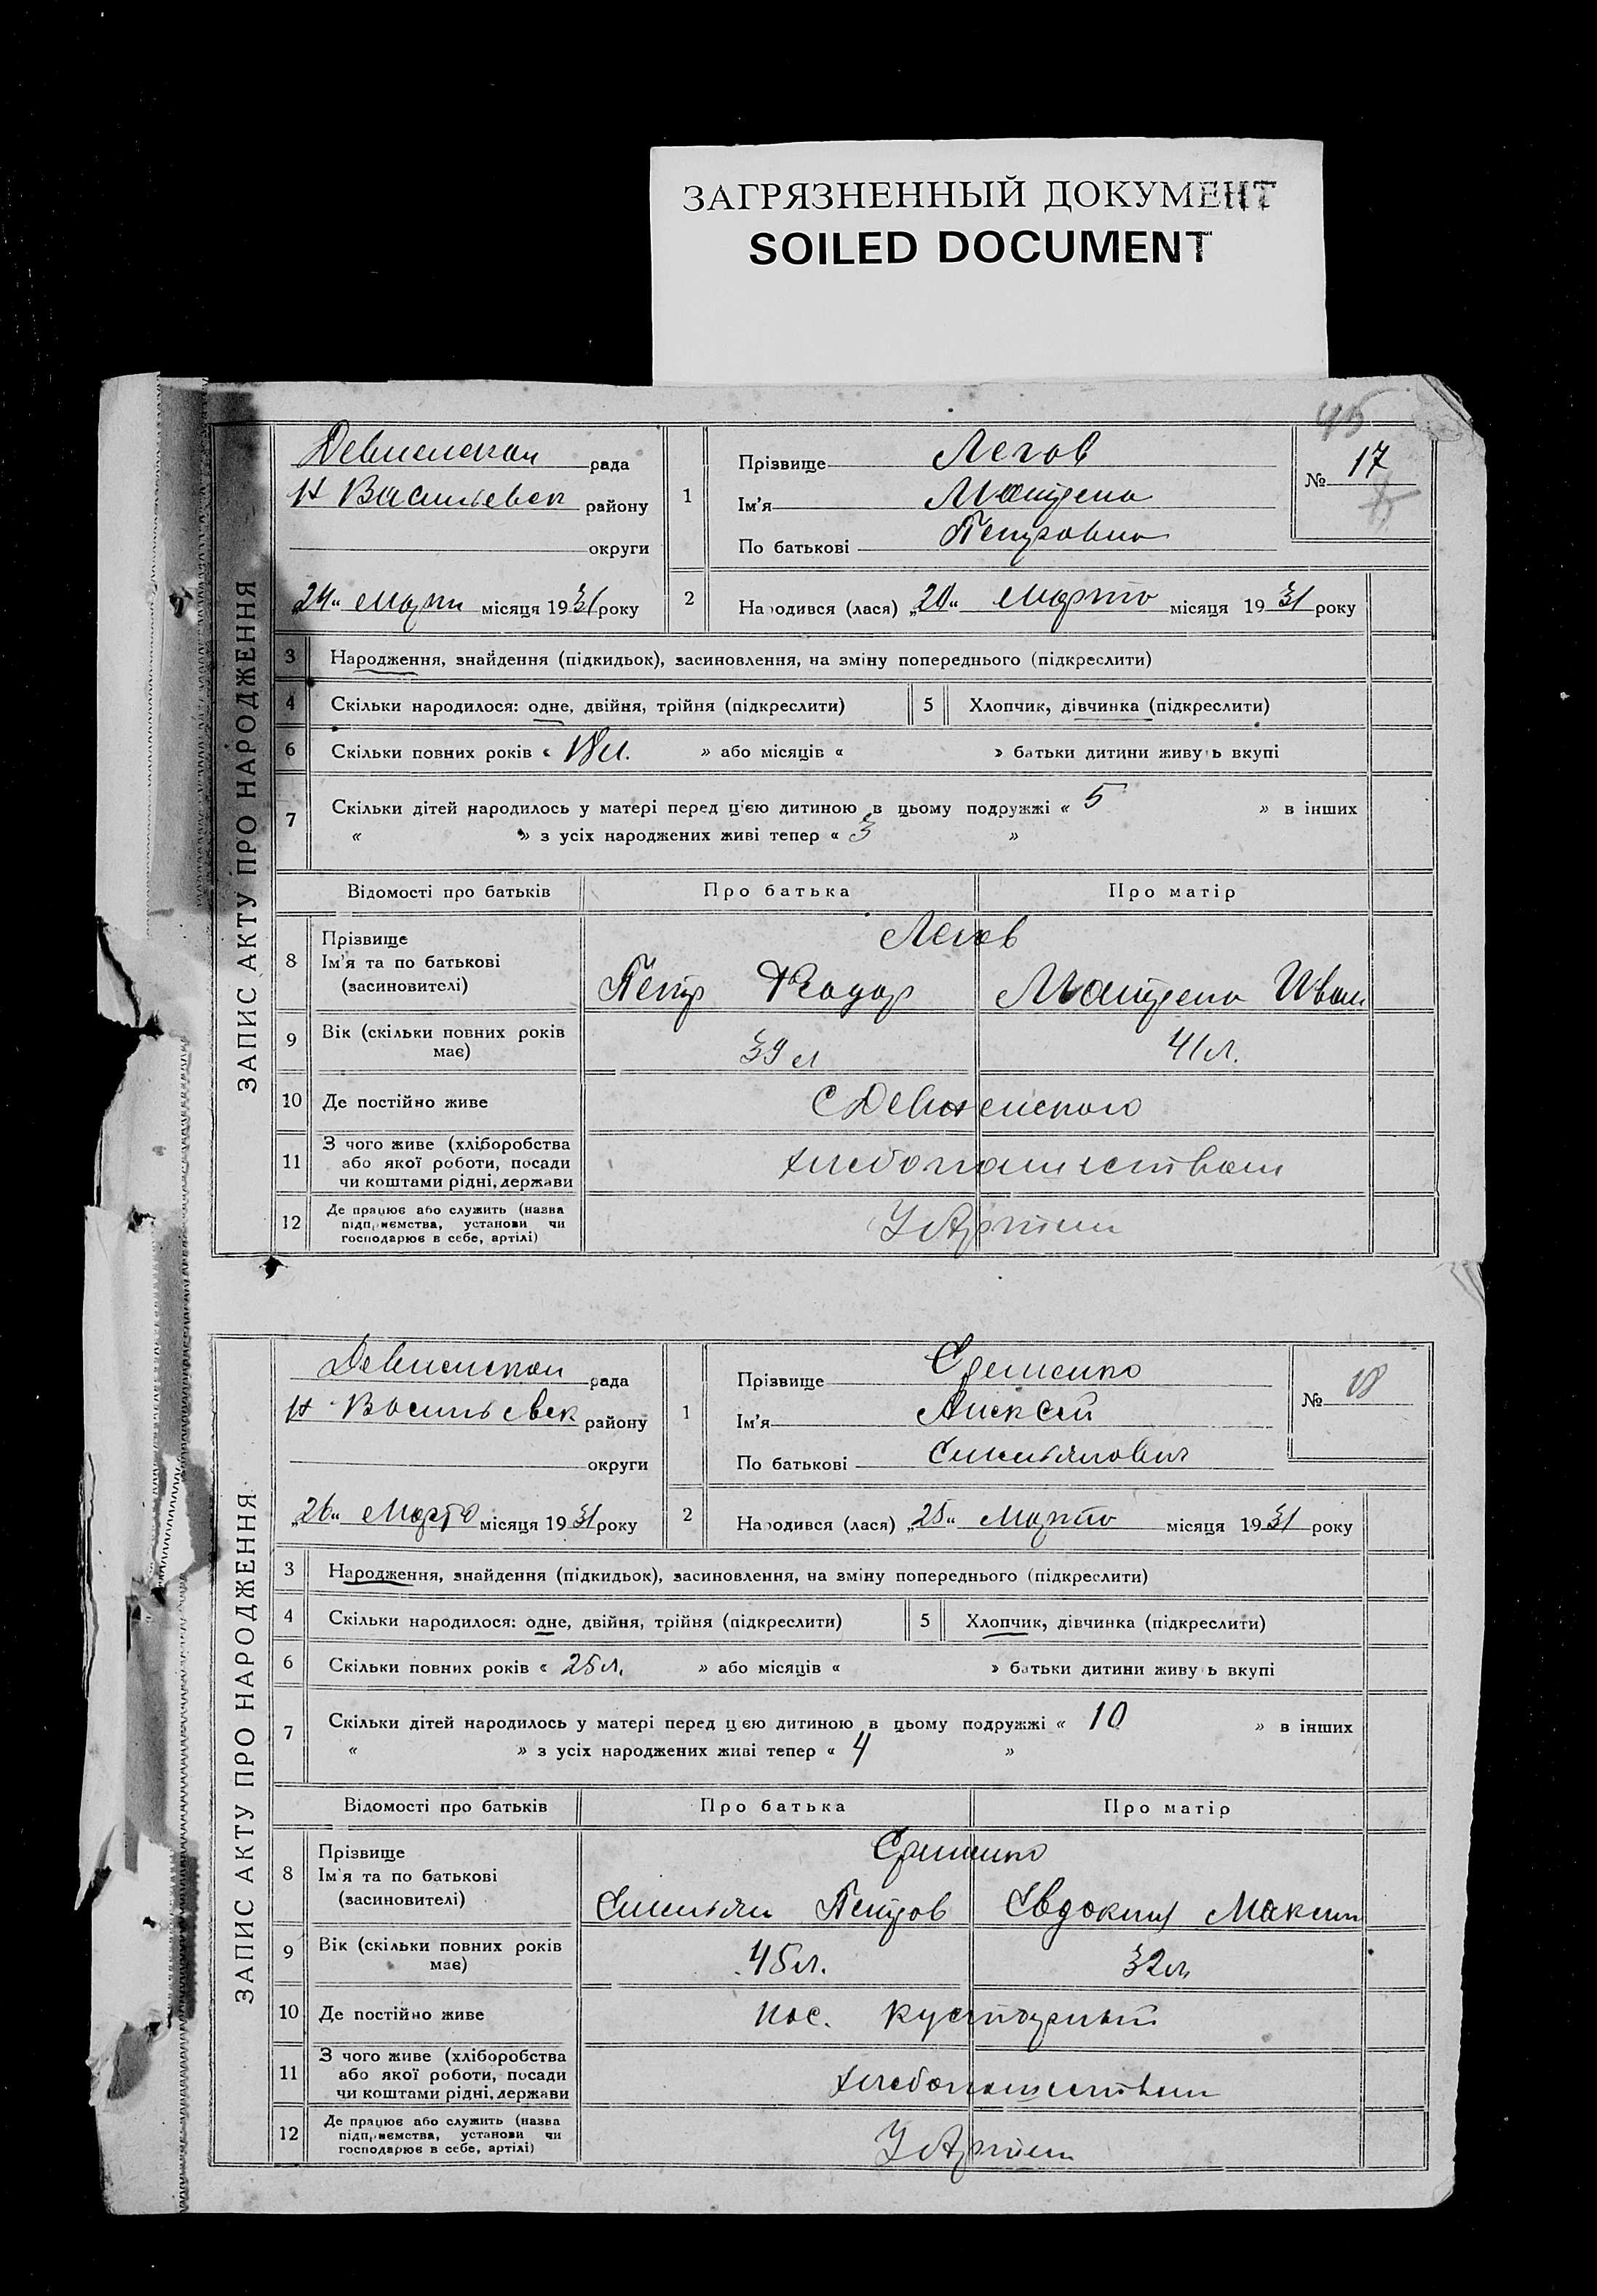 ЗАГРЯЗНЕННЫЙ ДОКУМЕНТ
SOILED DOCUMENT
45
ЗАПИС АКТУ ПРО НАРОДЖЕННЯ
рада
Н Васильевск району
округи
„24“ Марта місяця 1931 року
1
Прізвище Легов
Ім'я Матрена
По батькові Петровна
№ 17
2 Народився (лася) „20“ Марта місяця 1931 року
3 Народження, знайдення (підкидьок), засиновлення, на зміну попереднього (підкреслити)
4 Скільки народилося: одне, двійня, трійня (підкреслити) 5 Хлопчик, дівчинка (підкреслити)
6 Скільки повних років « 18 л. » або місяців « » батьки дитини живуть вкупі
7 Скільки дітей народилось у матері перед цією дитиною в цьому подружжі « 5 » в інших
« » з усіх народжених живі тепер « 3 »
Відомості про батьків Про батька Про матір
8 Прізвище Легов
Ім'я та по батькові
(засиновителі) Петр Феодор Матрена Иван
9 Вік (скільки повних років має) 39 л 41 л.
10 Де постійно живе
11 З чого живе (хліборобства або якої роботи, посади чи коштами рідні, держави хлебопашеством
12 Де працює або служить (назва підприємства, установи чи господарює в себе, артілі) У Артели
ЗАПИС АКТУ ПРО НАРОДЖЕННЯ
рада
Н Васильевск району
округи
„26“ Марта місяця 1931 року
1
Прізвище Еременко
Ім'я Алексей
По батькові Емельянович
№ 18
2 Народився (лася) „25“ Марта місяця 1931 року
3 Народження, знайдення (підкидьок), засиновлення, на зміну попереднього (підкреслити)
4 Скільки народилося: одне, двійня, трійня (підкреслити) 5 Хлопчик, дівчинка (підкреслити)
6 Скільки повних років « 25 л. » або місяців « » батьки дитини живуть вкупі
7 Скільки дітей народилось у матері перед цією дитиною в цьому подружжі « 10 » в інших
« » з усіх народжених живі тепер « 4 »
Відомості про батьків Про батька Про матір
8 Прізвище Еременко
Ім'я та по батькові
(засиновителі) Емельян Петров Евдокия Максим
9 Вік (скільки повних років має) 45 л. 32 л.
10 Де постійно живе пос. Кустарный
11 З чого живе (хліборобства або якої роботи, посади чи коштами рідні, держави хлебопашеством
12 Де працює або служить (назва підприємства, установи чи господарює в себе, артілі) У Артели